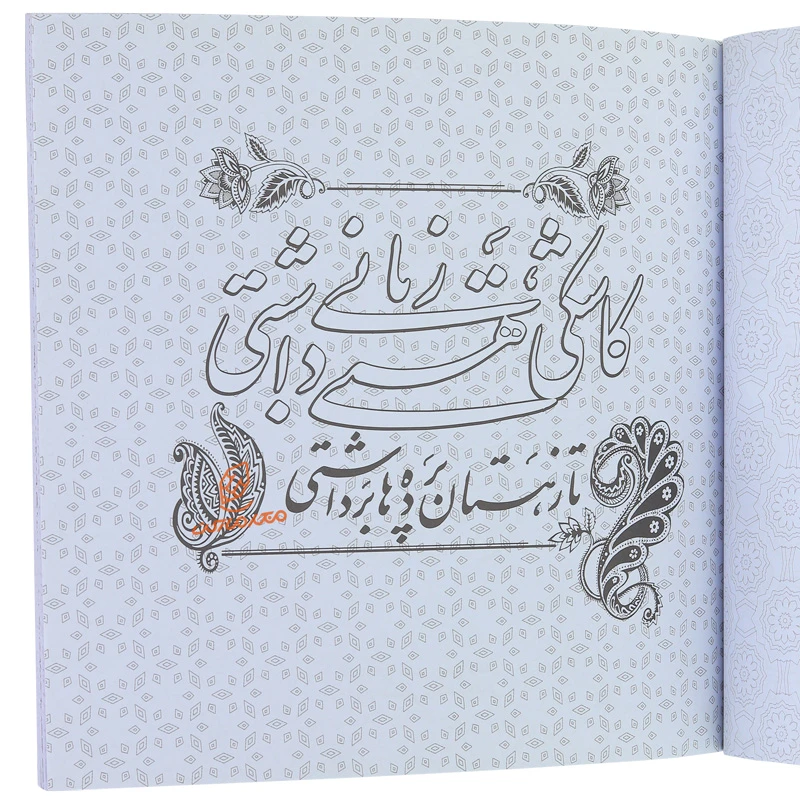 کاشکی هستی زبانی داشتی
تا ز هستان پرده‌ها برداشتی